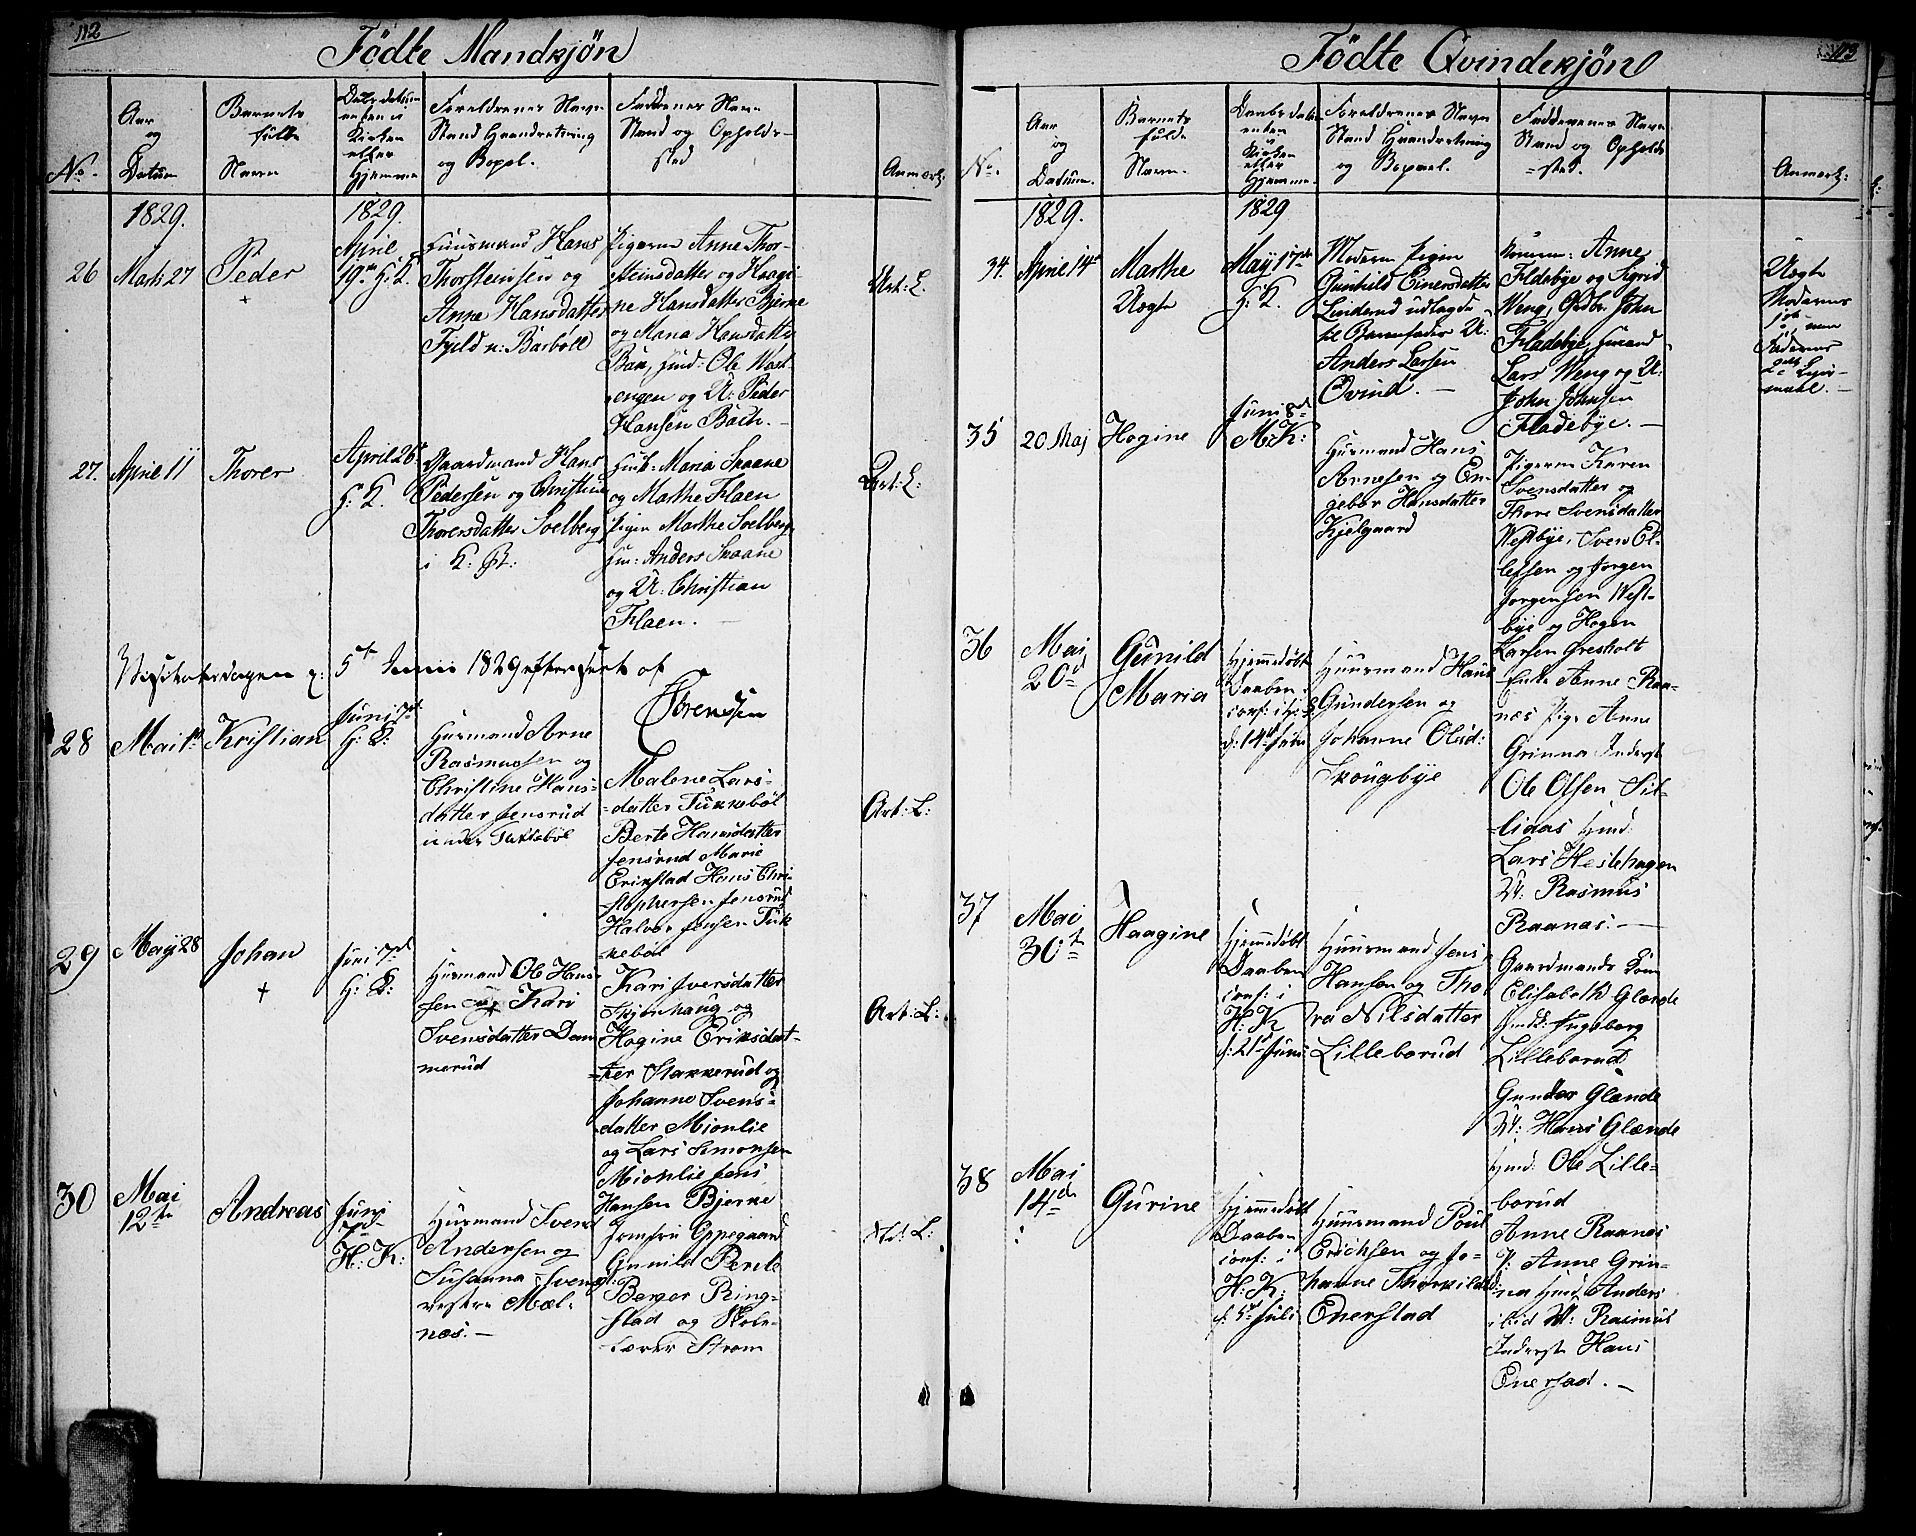 112
Födte Mandkjön
No.
Aar
og
Datum
Barnets
fulde
Navn
Daabsdatum
enten i
Kirken
eller
Hjemme
Foreldrenes Navn
Stand Haandretning
og Bopel.
Faddrenes Navn
Stand og Opholds-
sted
Anmerk:
1829.
1829.
26
Marti 27
Peder
+
April
19de H: K.
Huusmand Hans
Thorstensen og
Anne Hansdatter
Fjeld u: Barböll
Pigerne Anne Thor-
steinsdatter og Haagi-
ne Hansdatter Bjerne
og Maria Hansdatter
Bak, Huud: Ole West-
engen og U: Peder
Hansen Bach. -
Art: L.
27.
April 11
Thorer
April 26
H: K.
Gaardmand Hans
Pedersen og Christine
Thorersdatter Soelberg
i K. G:
Huuk: Maria Skaane
og Marthe Flaen
Pigen Marthe Soelberg
Hm: Anders Skaane
og U: Christian
Flaen. -
Art: L:
Visitatsdagen d: 5te Junii 1829 efterseet af
Sörenssen
28
Mai 1ste
Kristian
Juni 7de
H: K:
Husmand Arne
Rasmussen og
Christine Hans-
datter Jensrud
under Tukkebøl
Malene Lars-
datter Tukkebøl
Berte Hansdatter
Jensrud Marie
Erikstad Hans Chri-
stophersen Jensrud
Halvor Jensen Tuk
kebøl
Art: L:
29
May 28
Johan
+
Juni 7de
H: K:
Husmand Ole Han-
sen og Kari
Svensdatter Dam
merud
Kari Iversdatter
Skjønhaug og
Hogine Eriksdat-
ter Stakkerud og
Johanne Svens-
datter Mionlie
og Lars Simonsen
Mionlie Jens
Hansen Bjerke
Art: L:
30
Mai
12te
Andreas
Juni
7de
H: K:
Husmand Svend
Andersen og
Susanna Svends
vestre Mæl-
nes. -
Jomfru Eppegaard
Gunild Perile
Berger Ring-
stad og Skole-
lærer Strøm
Art: L:
113
Födte Qvindekjön
No.
Aar
og
Datum.
Barnets
fulde
Navn.
Daabsdatum
enten
i
Kirken
eller
Hjemme
Foreldrenes Navn
Stand Haandretning
og Bopael.
Faddrenes Navn
Stand og Opholds
-sted.
Anmerk:
1829.
1829
34.
April 14de
Marthe
Uegte
May 17de
H: K.
Moderen Pigen
Gunhild Einersdatter
Linderud udlagde
til Barnefader U:
Anders Larsen
Qvind. -
Konen: Anne
Fladebye og Sigrid
Weng, Gdbr. John
Fladebye, Husmand
Lars Weng og U:
John Johnsen
Fladebye. -
Uegte
Moderens
1ste men
Faderens
2de Leier-
maal. -
35
20 Maj
Hogine
Juni 8de
M: K:
Husmand Hans
Arnesen og En-
gebor Hansdatter
Kjelgaard
Pigerne Karen
Svensdatter og
Thore Svensdatter
Westbye, Sven El-
lefsen og Jorgen
Jorgensen West-
bye og Hogen
Larsen Gresholt
36
Mai
20de
Gunild
Maria
Hjemmedøbt
Daaben
conf: i H: K
d: 14de Juni
Huusmand Hans
Gundersen og
Johanne Olsd:
Skougbye
Enke Anne Raa-
næs Pige Anne
Grinna Inderst
Ole Olsen Sil-
liaas Hmd:
Lars Hestehagen
U: Rasmus
Raanas. -
37
Mai
30te
Haagine
Hjemmedøbt
Daaben
conf: i
H: K
d: 21de Juni
Huusmand Jens
Hansen og Tho
ra Nilsdatter
Lilleborud
Gaardmands Kone
Elisabeth Glænde
Hmdk: Ingeborg
Lilleborud
Gunder Glænde
U: Hans Glænde
Hmd: Ole Lille-
borud
38
Mai
14de
Gurine
Hjemmedøbt
Daaben
conf: i
H: K:
d: 5te Juli
Huusmand Poul
Erichsen og Jo-
hanne Thorkildsd:
Enerstad
Anne Raanas
P: Anne Grin-
na Hmd Anders
ibid U: Rasmus
Inderst Hans
Enerstad. -